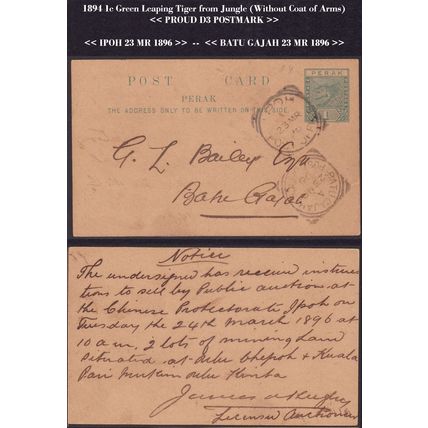 1894 1c Green Leaping Tiger from Jungle (Without Coat of Arms)
<< PROUD D3 POSTMARK >>
<< IPOH 23 MR 1896 >> -- << BATU GAJAH 23 MR 1896 >>
POST CARD
PERAK
THE ADDRESS ONLY TO BE WRITTEN ON THIS SIDE.
PERAK
IPOH
23 MR
BATU GAJAH
G. L. Bailey Esq
Batu Gajah
Notice
The undersigned has receive instruc
tions to sell by Public auction at
the Chinese Protectorate Ipoh on
Tuesday the 24th March 1896 at
10 a.m. 2 lots of mining land
situated at Hulu Chepoh & Kuala
Pari Mukim Hulu Kinta
James Hughes
Licensed Auctioneer